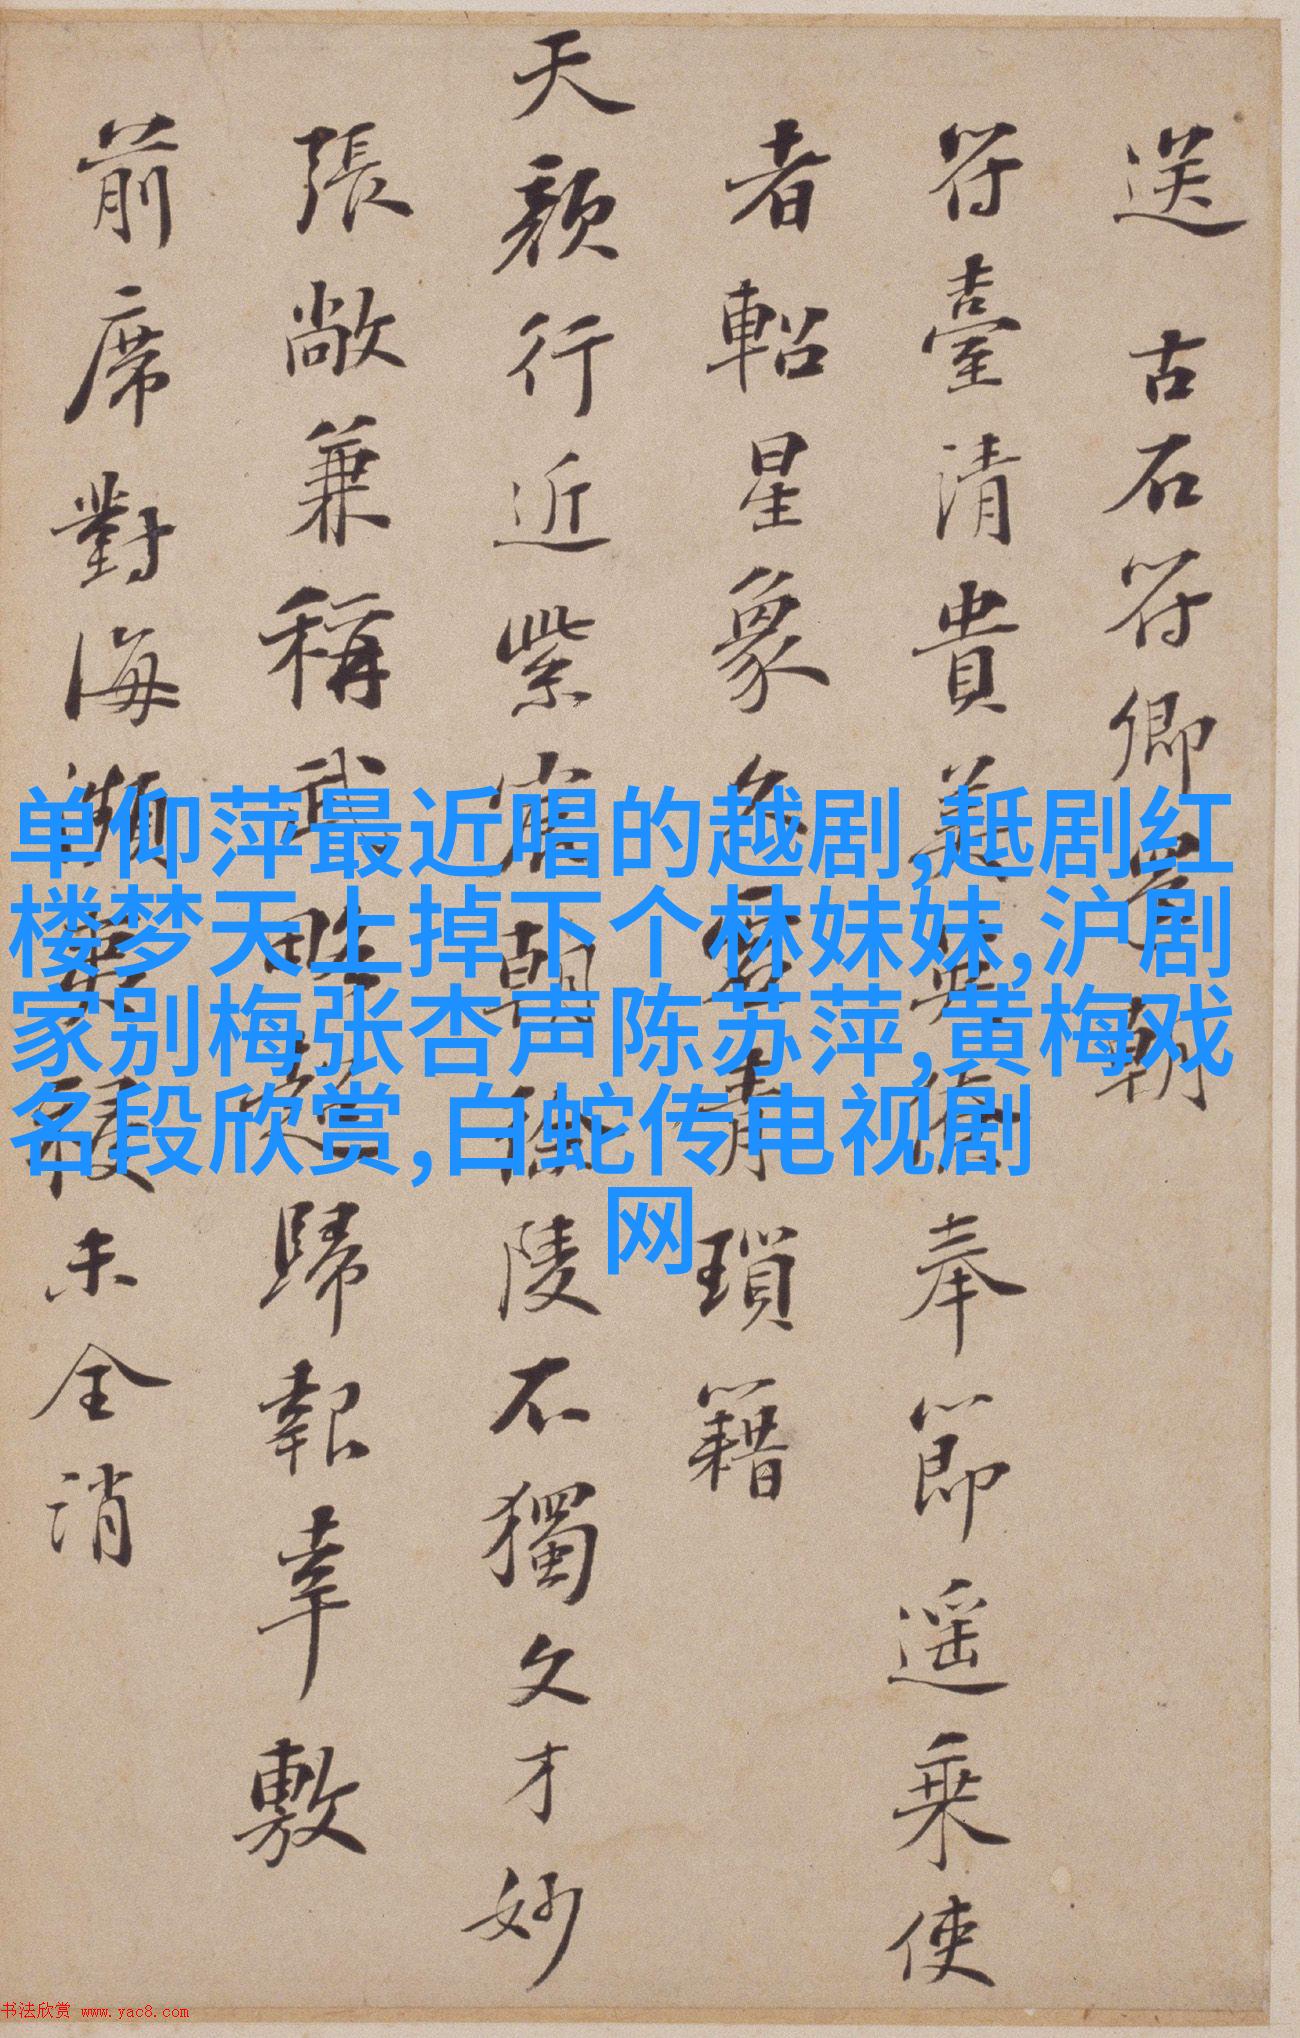 送 古石符卿朝
符臺清貴奉節遥乘使
者軺星象久虚青瑣籍
天顔行近紫宸朝徐陵不獨文才妙
張敞兼稱武略超歸報幸敷
前席對海瀕氛祲未全消
单仰萍最近唱的越剧,趆剧红
楼梦天上掉下个林妹妹,沪剧
家别梅张杏声陈苏萍,黄梅戏
名段欣赏,白蛇传电视剧
网
书法欣赏 www.yac8.com